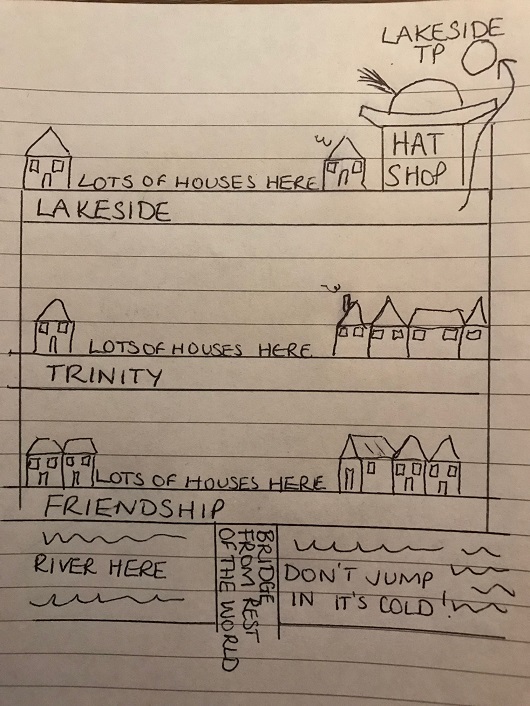 LAKESIDE
TP
HAT
SHOP
LOTS OF HOUSES HERE
LAKESIDE
LOTS OF HOUSES HERE
TRINITY
LOTS OF HOUSES HERE
FRIENDSHIP
RIVER HERE
BRIDGE
FROM REST
OF THE WORLD
DON'T JUMP
IN IT'S COLD!